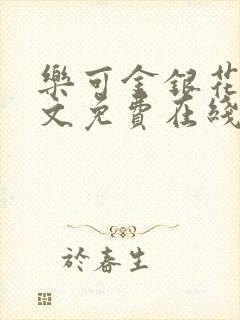 樂可金銀花
文免費在綫
於春生